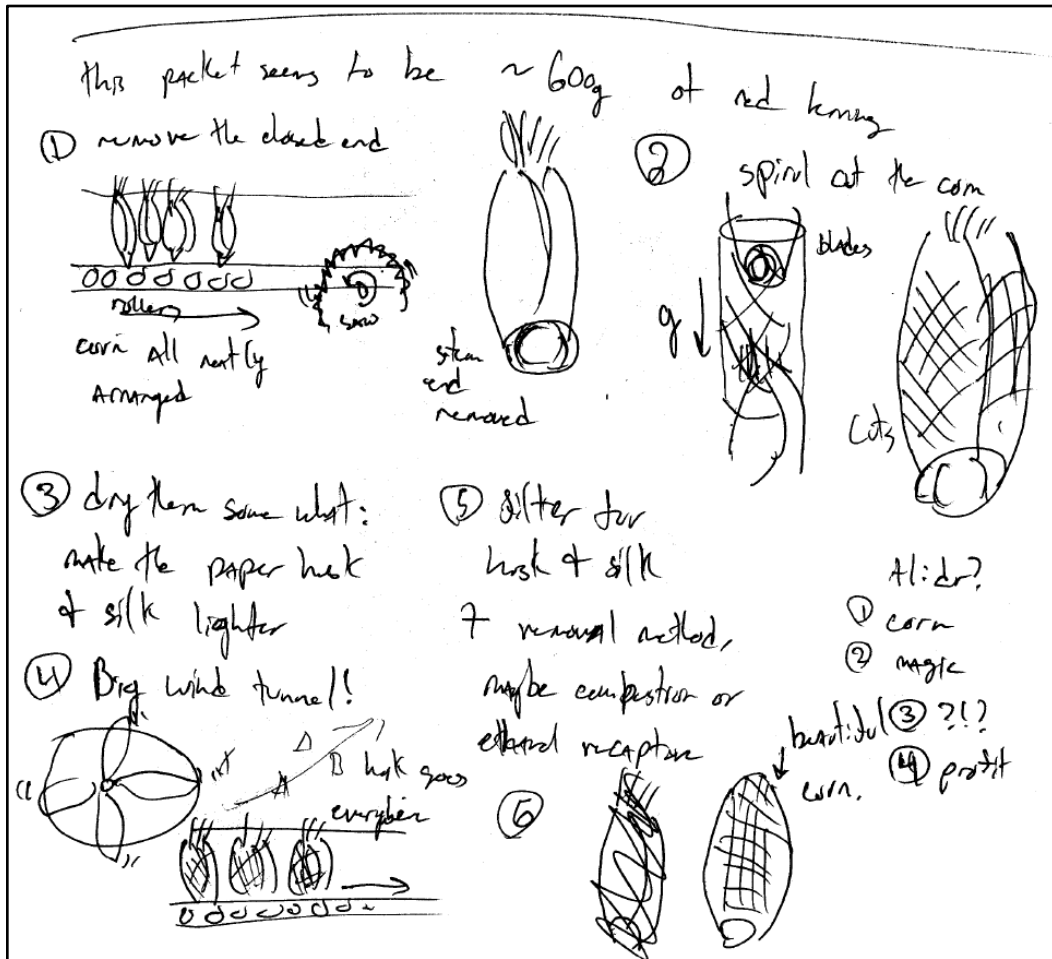 this packet seems to be ~600g of red herring
① remove the closed end
rollers
saw
corn all neatly
arranged
stem
end
removed
②
spiral cut the corn
blades
g
cuts
③ dry them some what:
make the paper husk
& silk lighter
④ Big wind tunnel!
husk goes
everywhere
⑤ filter for
husk & silk
+ removal method,
maybe combustion or
ethanol recapture
⑥
beautiful
corn.
① corn
② magic
③ ?!?
④ profit